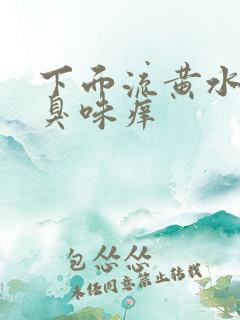 下而流黄水
臭味痒
包怂怂
未经同意禁止转载